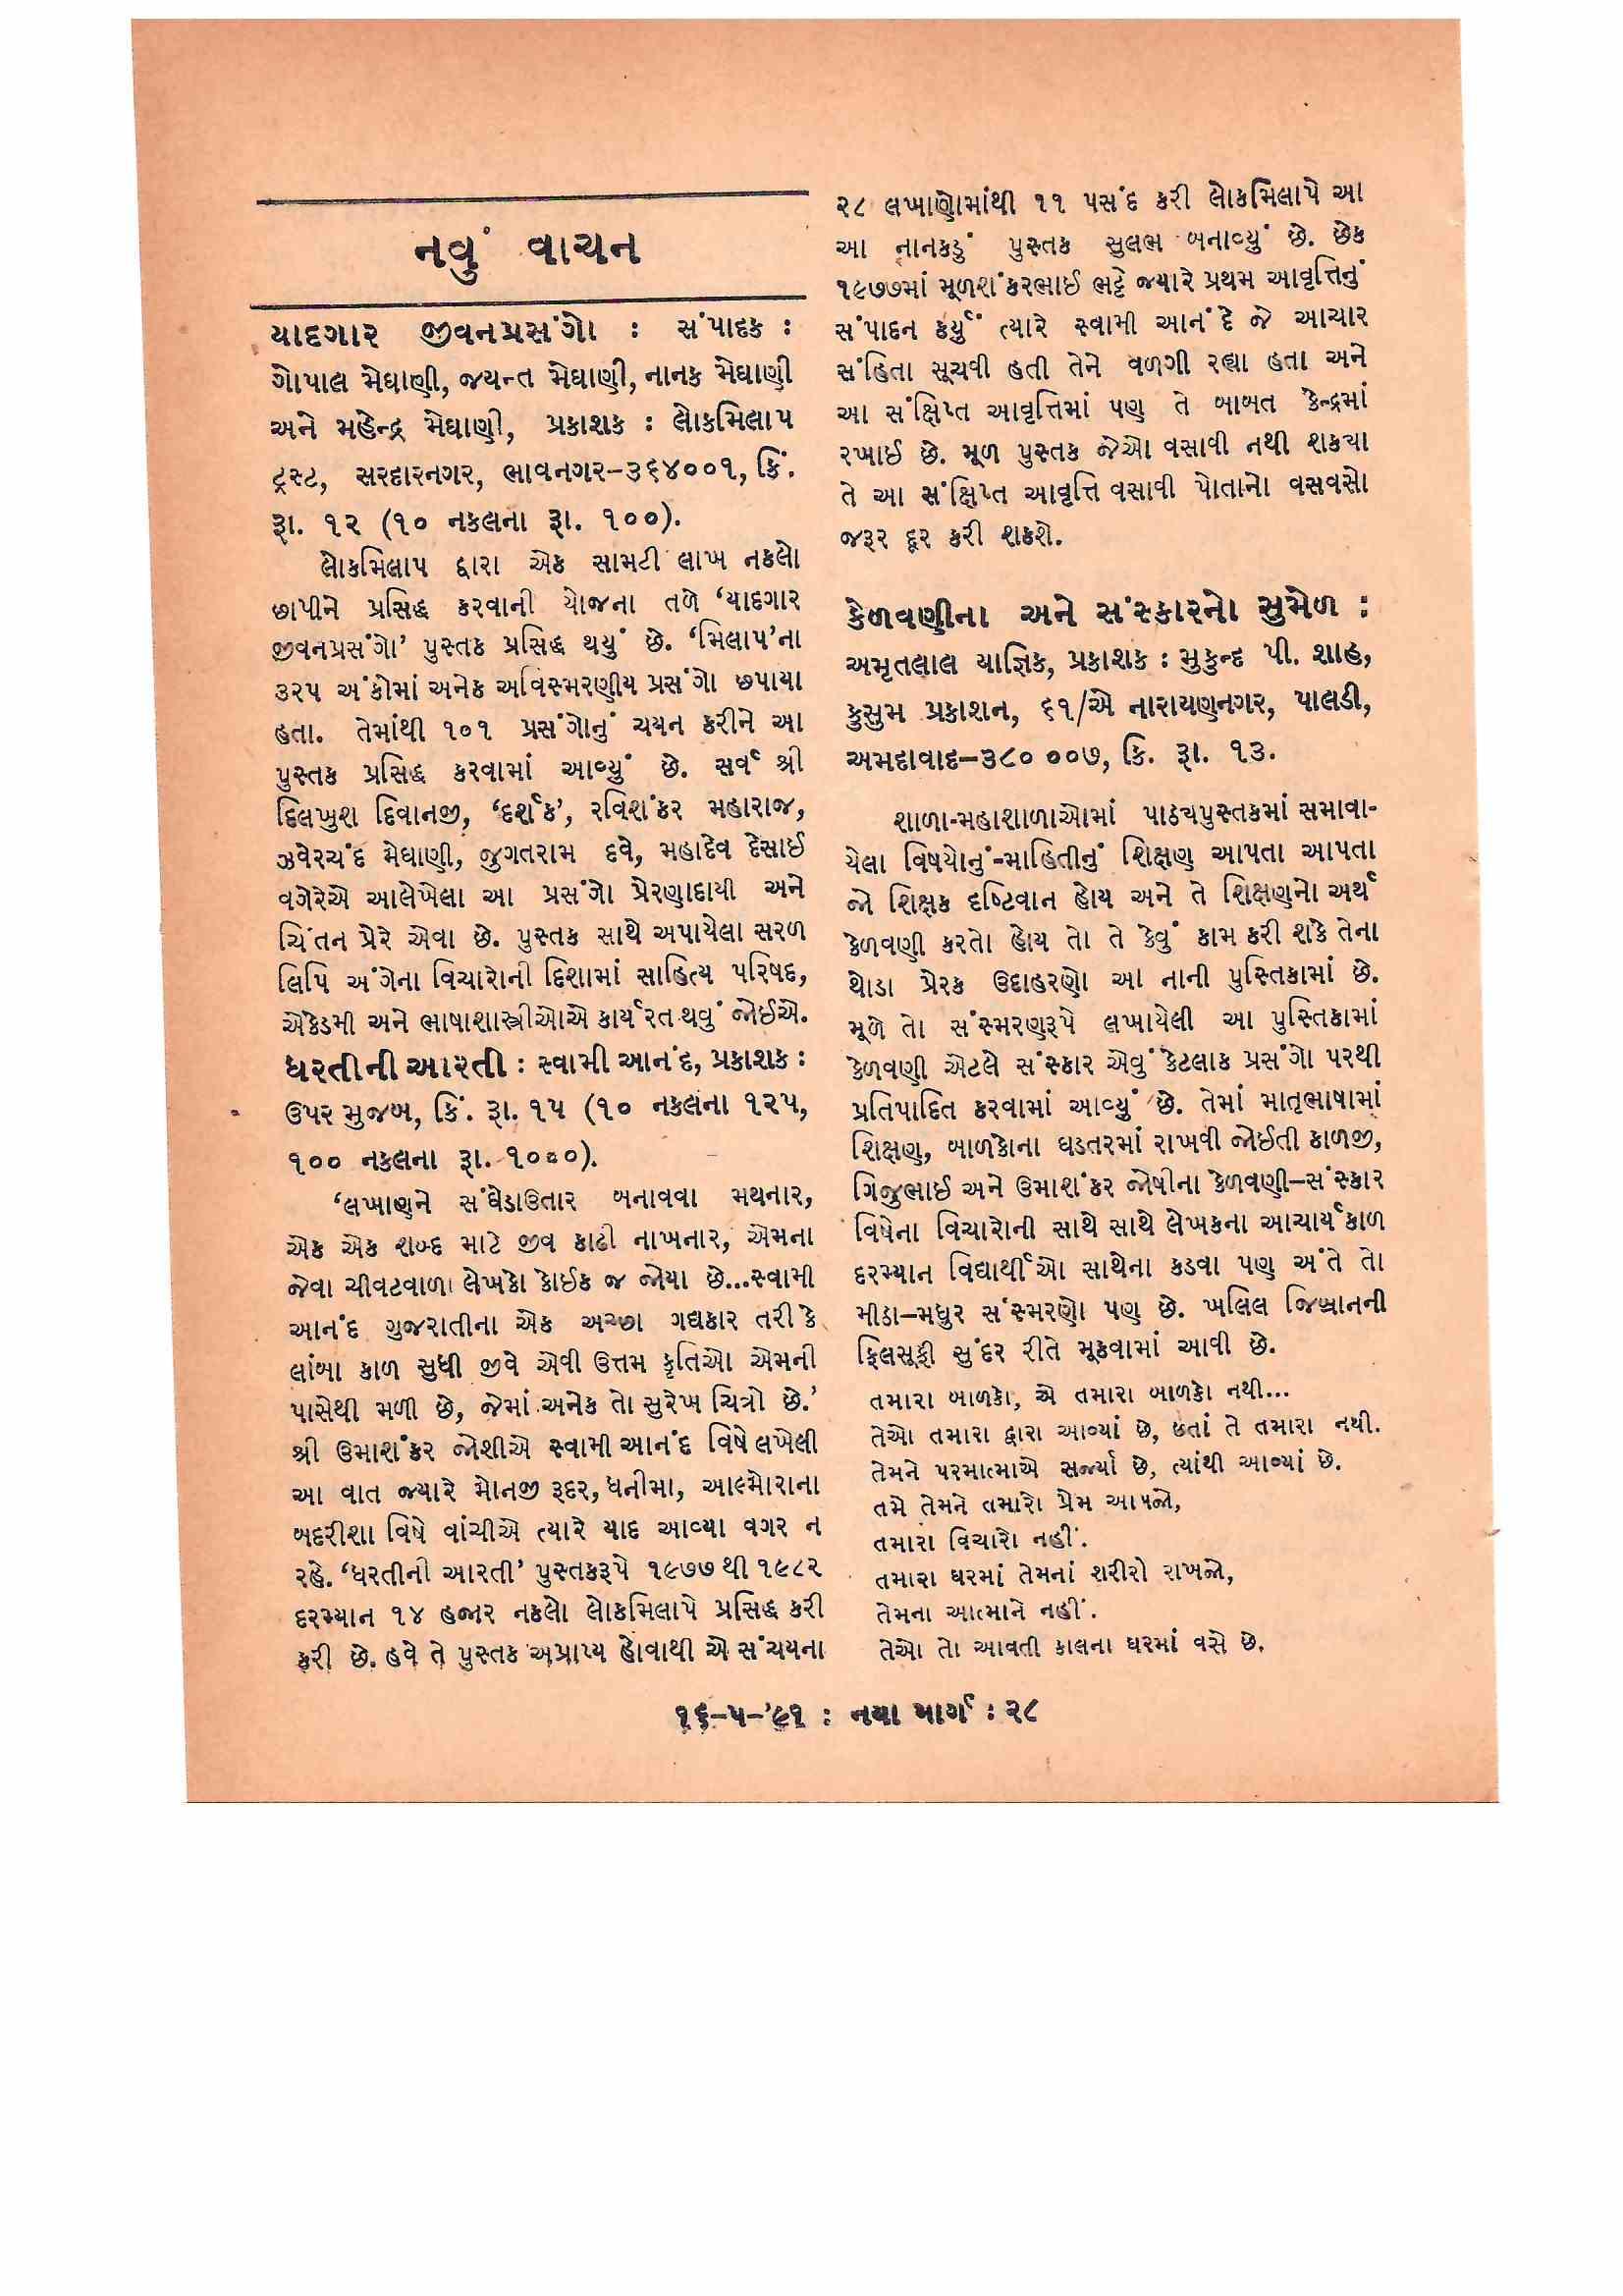 નવું વાચન
યાદગાર જીવનપ્રસંગો : સંપાદક :
ગોપાલ મેઘાણી, જયન્ત મેઘાણી, નાનક મેઘાણી
અને મહેન્દ્ર મેઘાણી, પ્રકાશક : લોકમિલાપ
ટ્રસ્ટ, સરદારનગર, ભાવનગર-૩૬૪૦૦૧, કિં.
રૂા. ૧૨ (૧૦ નકલના રૂા. ૧૦૦).
લોકમિલાપ દ્વારા એક સામટી લાખ નકલો
છાપીને પ્રસિદ્ધ કરવાની યોજના તળે ‘યાદગાર
જીવનપ્રસંગો’ પુસ્તક પ્રસિદ્ધ થયું છે. ‘મિલાપ’ના
૩૨૫ અંકોમાં અનેક અવિસ્મરણીય પ્રસંગો છપાયા
હતા. તેમાંથી ૧૦૧ પ્રસંગોનું ચયન કરીને આ
પુસ્તક પ્રસિદ્ધ કરવામાં આવ્યું છે. સર્વ શ્રી
દિલખુશ દિવાનજી, ‘દર્શક’, રવિશંકર મહારાજ,
ઝવેરચંદ મેઘાણી, જુગતરામ દવે, મહાદેવ દેસાઈ
વગેરેએ આલેખેલા આ પ્રસંગો પ્રેરણાદાયી અને
ચિંતન પ્રેરે એવા છે. પુસ્તક સાથે અપાયેલા સરળ
લિપિ અંગેના વિચારોની દિશામાં સાહિત્ય પરિષદ,
એકેડમી અને ભાષાશાસ્ત્રીઓએ કાર્યરત થવું જોઈએ.
ધરતીની આરતી : સ્વામી આનંદ, પ્રકાશક :
ઉપર મુજબ, કિં. રૂા. ૧૫ (૧૦ નકલના ૧૨૫,
૧૦૦ નકલના રૂા. ૧૦૦૦).
‘લખાણને સંઘેડાઉતાર બનાવવા મથનાર,
એક એક શબ્દ માટે જીવ કાઢી નાખનાર, એમના
જેવા ચીવટવાળા લેખકો કોઈક જ જોયા છે...સ્વામી
આનંદ ગુજરાતીના એક અચ્છા ગદ્યકાર તરીકે
લાંબા કાળ સુધી જીવે એવી ઉત્તમ કૃતિઓ એમની
પાસેથી મળી છે, જેમાં અનેક તો સુરેખ ચિત્રો છે.’
શ્રી ઉમાશંકર જોશીએ સ્વામી આનંદ વિષે લખેલી
આ વાત જ્યારે મોનજી રૂદર, ધનીમા, આલ્મોરાના
બદરીશા વિષે વાંચીએ ત્યારે યાદ આવ્યા વગર ન
રહે. ‘ધરતીની આરતી’ પુસ્તકરૂપે ૧૯૭૭ થી ૧૯૮૨
દરમ્યાન ૧૪ હજાર નકલો લોકમિલાપે પ્રસિદ્ધ કરી
કરી છે. હવે તે પુસ્તક અપ્રાપ્ય હોવાથી એ સંચયના
૨૮ લખાણોમાંથી ૧૧ પસંદ કરી લોકમિલાપે આ
આ નાનકડું પુસ્તક સુલભ બનાવ્યું છે. છેક
૧૯૭૭માં મૂળશંકરભાઈ ભટ્ટે જ્યારે પ્રથમ આવૃત્તિનું
સંપાદન કર્યું ત્યારે સ્વામી આનંદે જે આચાર
સંહિતા સૂચવી હતી તેને વળગી રહ્યા હતા અને
આ સંક્ષિપ્ત આવૃત્તિમાં પણ તે બાબત કેન્દ્રમાં
રખાઈ છે. મૂળ પુસ્તક જેઓ વસાવી નથી શક્યા
તે આ સંક્ષિપ્ત આવૃત્તિ વસાવી પોતાનો વસવસો
જરૂર દૂર કરી શકશે.
કેળવણીના અને સંસ્કારનો સુમેળ :
અમૃતલાલ યાજ્ઞિક, પ્રકાશક : મુકુન્દ પી. શાહ,
કુસુમ પ્રકાશન, ૬૧/એ નારાયણનગર, પાલડી,
અમદાવાદ–૩૮૦ ૦૦૭, કિ. રૂા. ૧૩.
શાળા-મહાશાળાઓમાં પાઠ્યપુસ્તકમાં સમાવા-
યેલા વિષયોનું-માહિતીનું શિક્ષણ આપતા આપતા
જો શિક્ષક દૃષ્ટિવાન હોય અને તે શિક્ષણનો અર્થ
કેળવણી કરતો હોય તો તે કેવું કામ કરી શકે તેના
થોડા પ્રેરક ઉદાહરણો આ નાની પુસ્તિકામાં છે.
મૂળે તો સંસ્મરણરૂપે લખાયેલી આ પુસ્તિકામાં
કેળવણી એટલે સંસ્કાર એવું કેટલાક પ્રસંગો પરથી
પ્રતિપાદિત કરવામાં આવ્યું છે. તેમાં માતૃભાષામાં
શિક્ષણ, બાળકોના ઘડતરમાં રાખવી જોઈતી કાળજી,
ગિજુભાઈ અને ઉમાશંકર જોષીના કેળવણી–સંસ્કાર
વિષેના વિચારોની સાથે સાથે લેખકના આચાર્યકાળ
દરમ્યાન વિદ્યાર્થીઓ સાથેના કડવા પણ અંતે તો
મીઠા–મધુર સંસ્મરણો પણ છે. ખલિલ જિબ્રાનની
ફિલસૂફી સુંદર રીતે મૂકવામાં આવી છે.
તમારા બાળકો, એ તમારા બાળકો નથી...
તેઓ તમારા દ્વારા આવ્યાં છે, છતાં તે તમારા નથી.
તેમને પરમાત્માએ સર્જ્યા છે, ત્યાંથી આવ્યાં છે.
તમે તેમને તમારો પ્રેમ આપજો,
તમારા વિચારો નહીં.
તમારા ઘરમાં તેમનાં શરીરો રાખજો,
તેમના આત્માને નહીં.
તેઓ તો આવતી કાલના ઘરમાં વસે છે.
૧૬–૫–’૯૧ : નયા માર્ગ : ૨૮